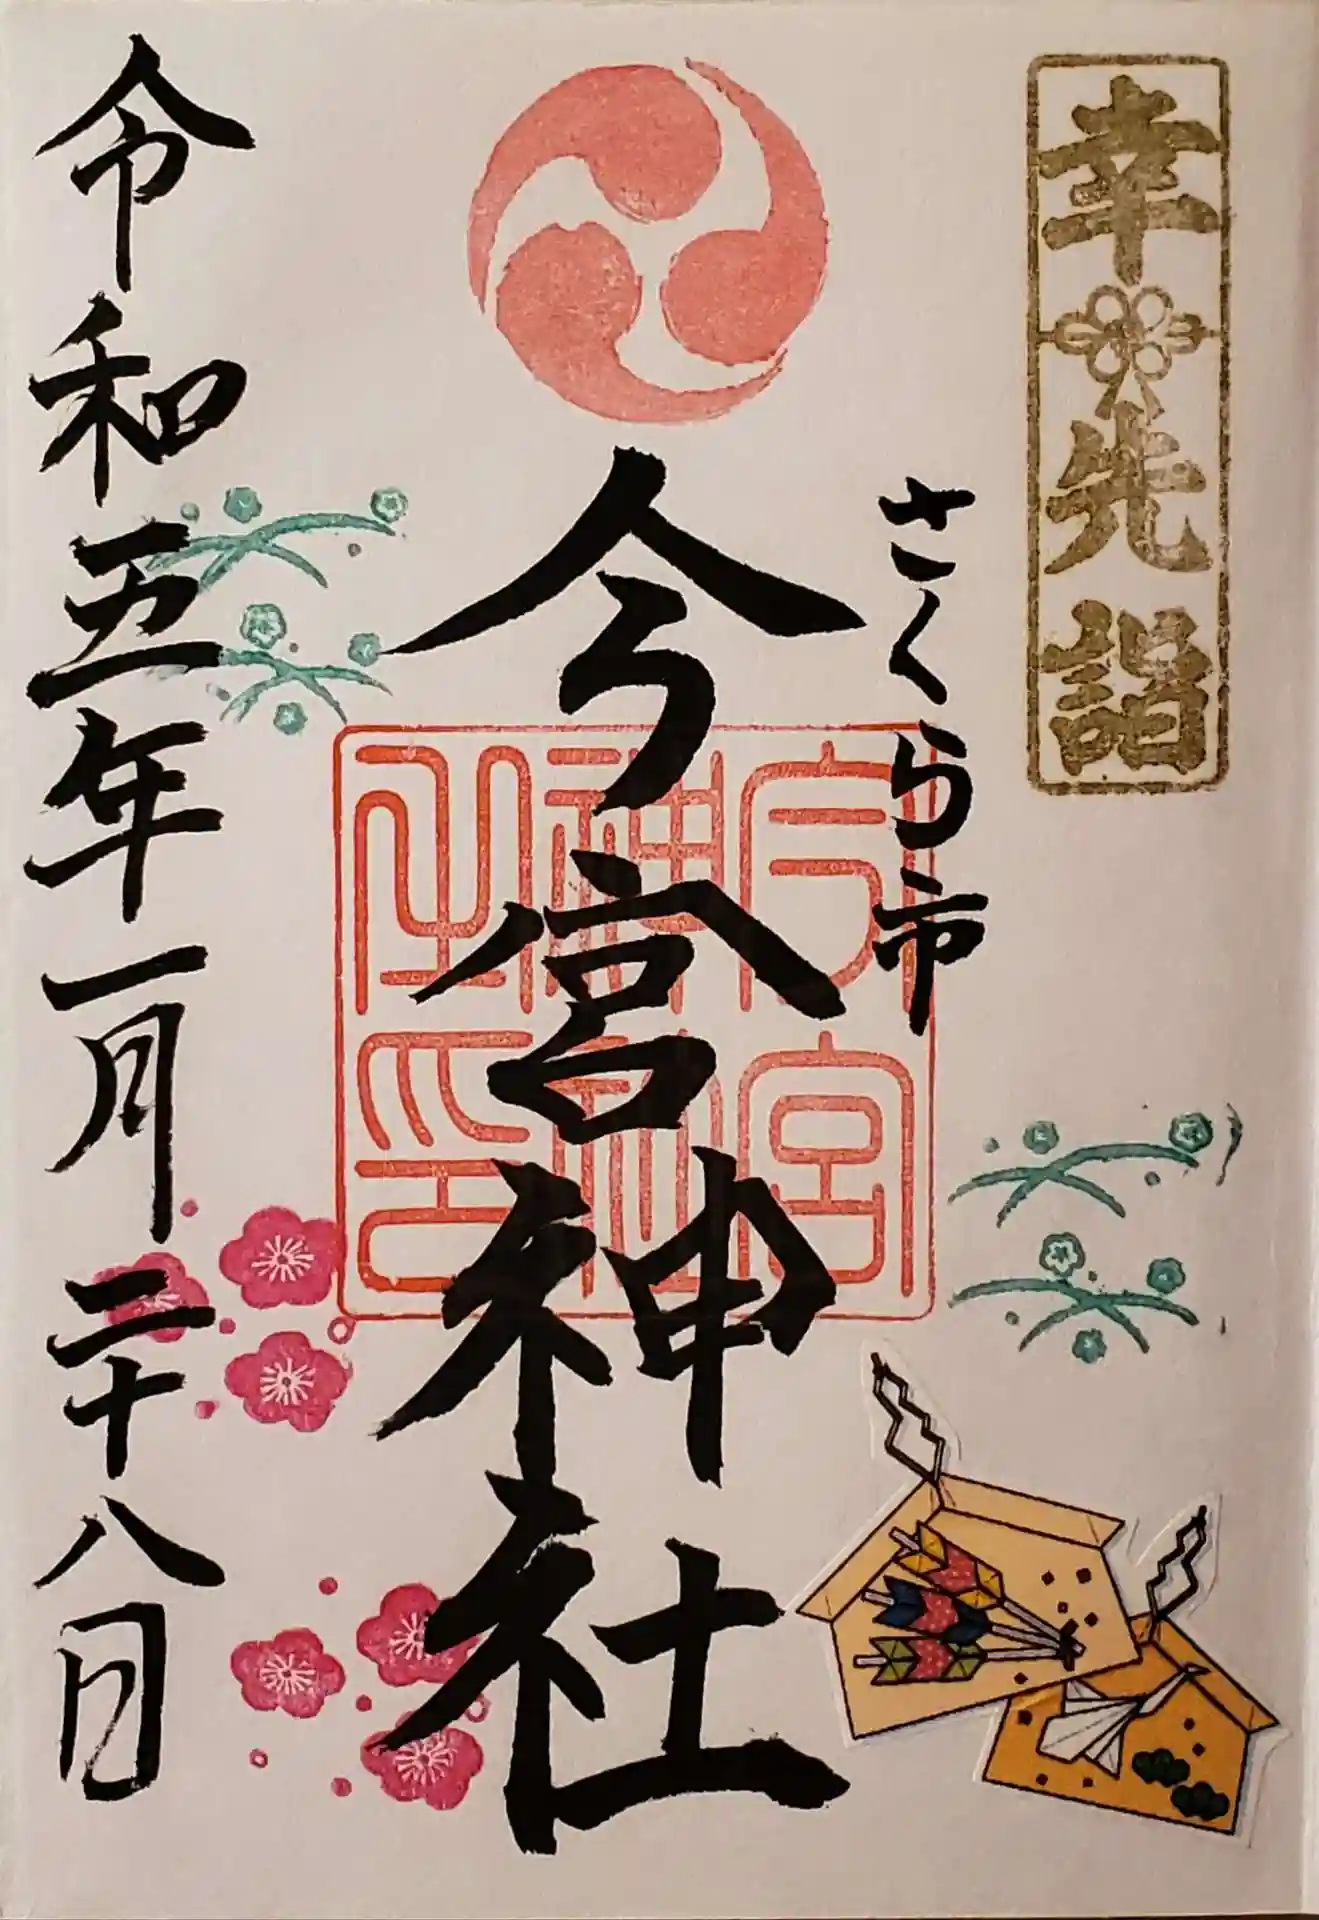 幸先詣
さくら市
今宮神社
今宮神社之印
令和五年一月二十八日